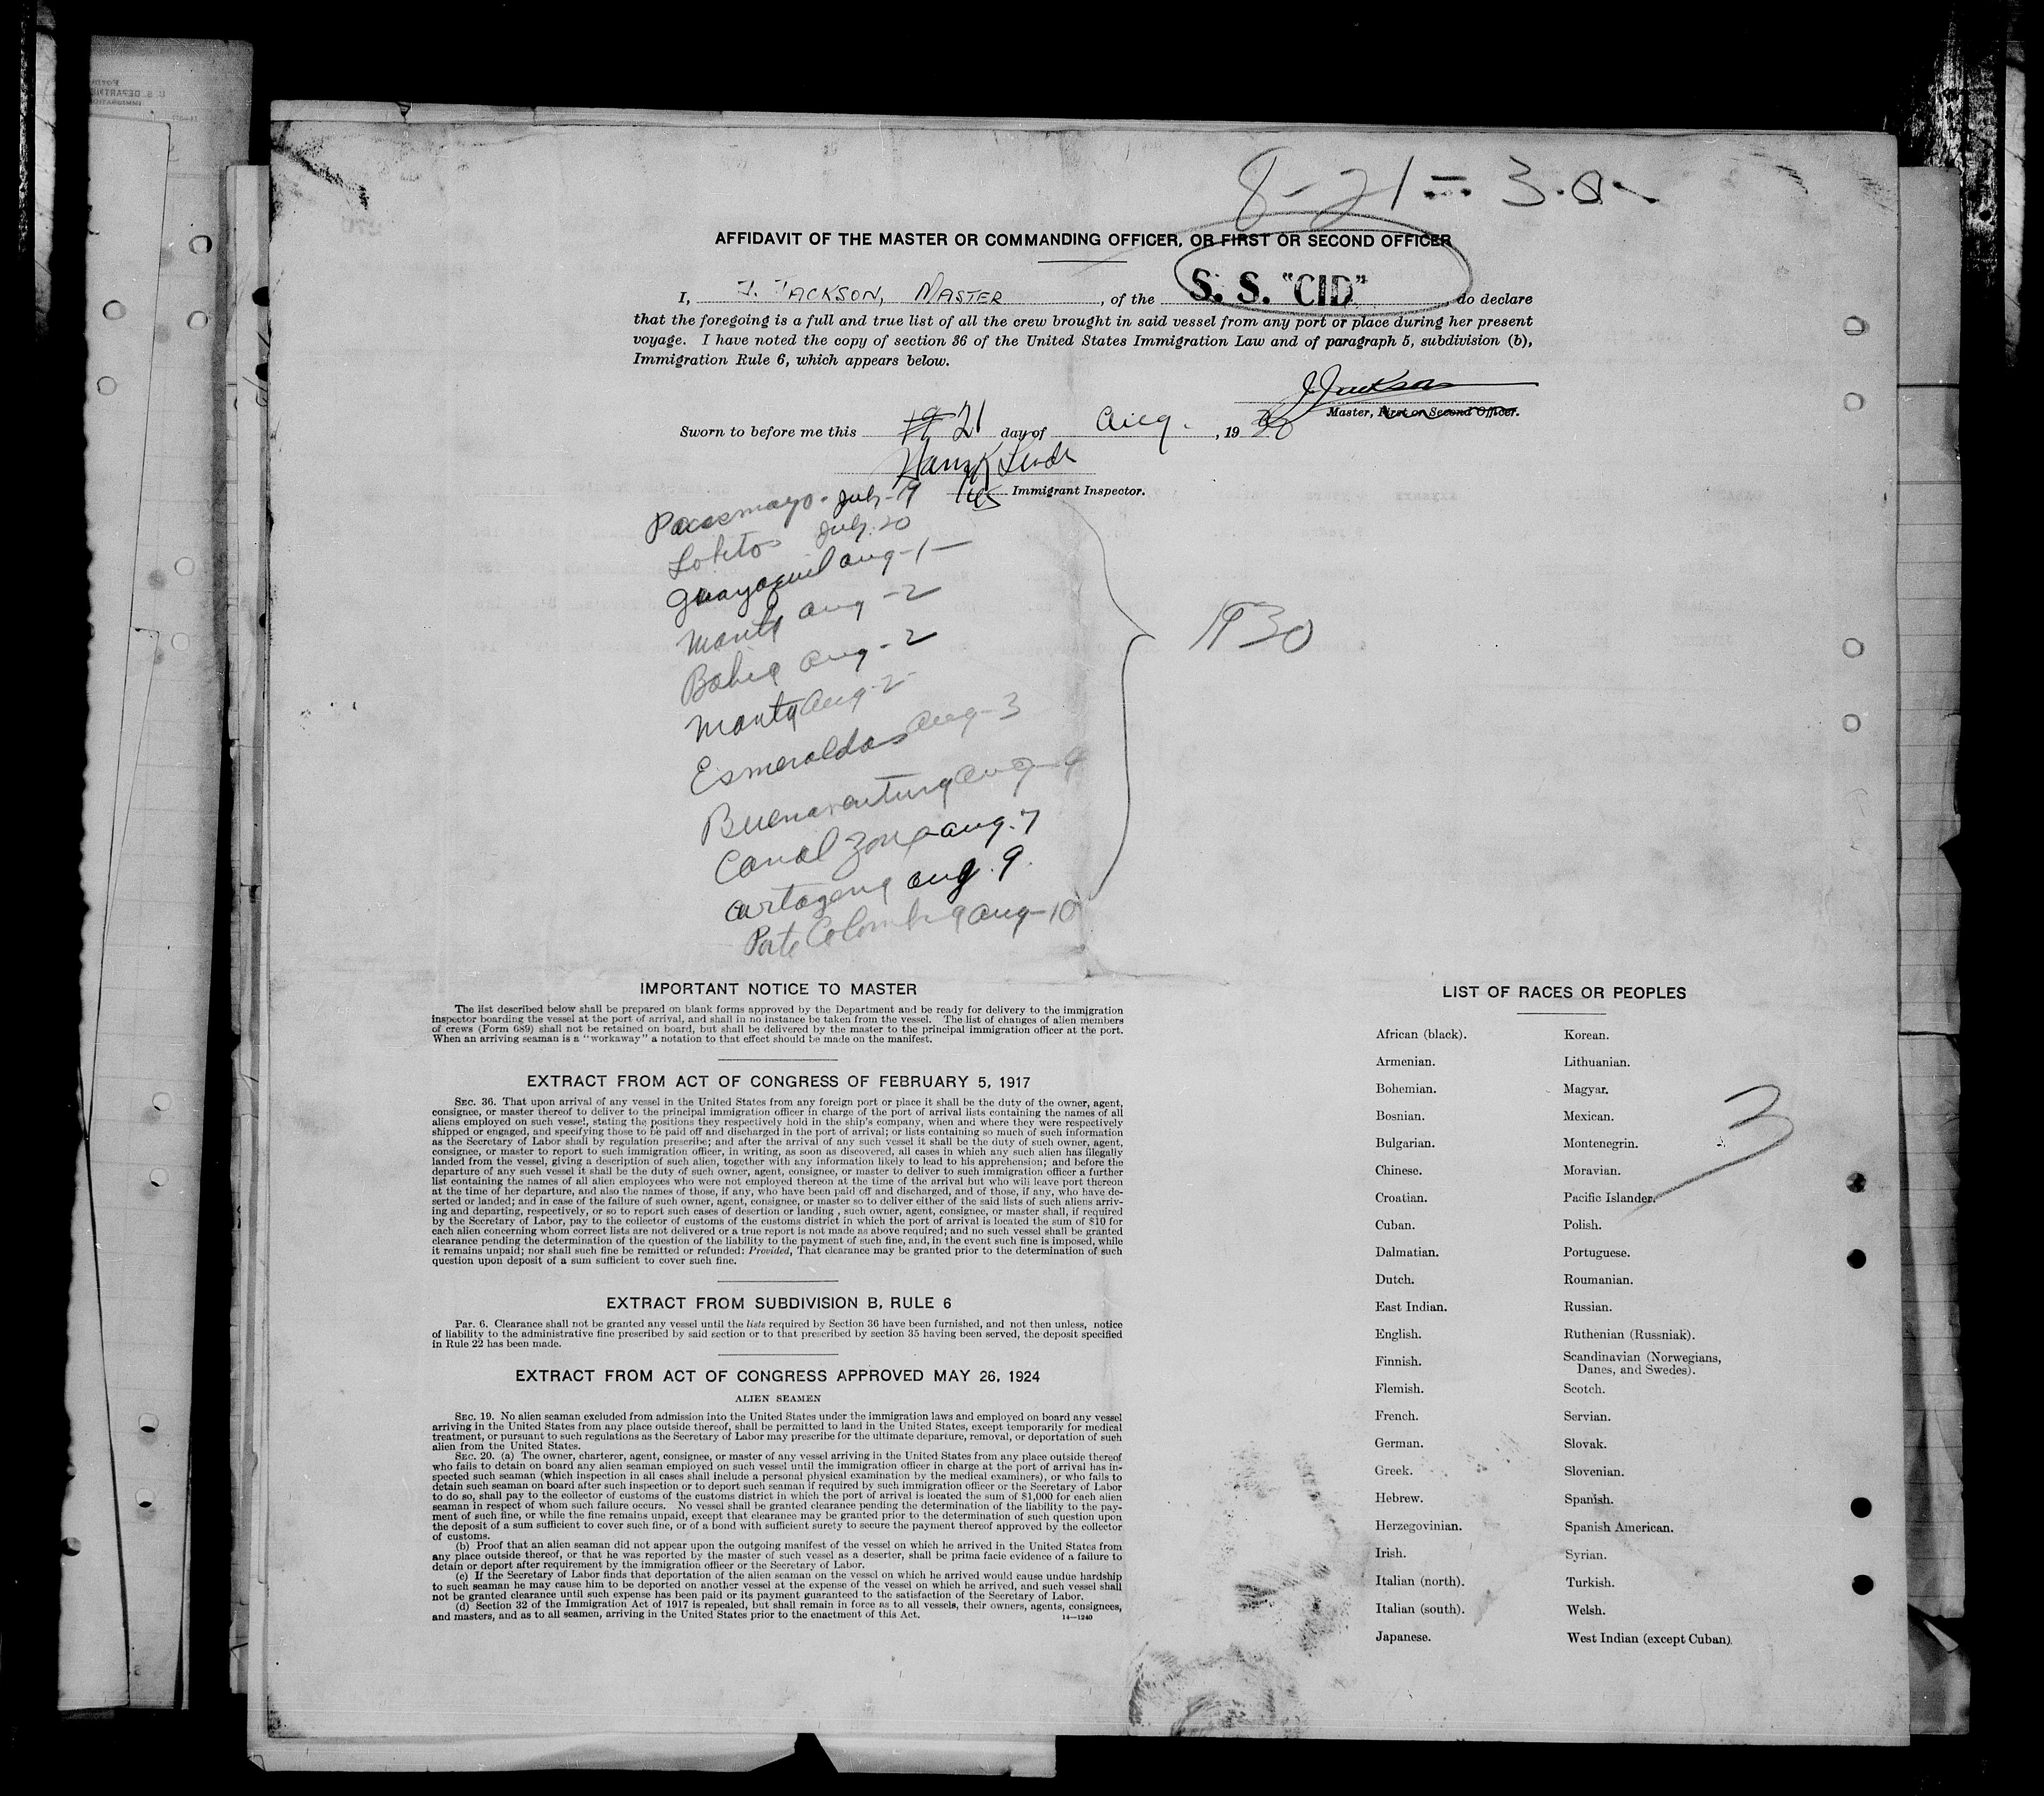 8-21-30
AFFIDAVIT OF THE MASTER OR COMMANDING OFFICER, OR FIRST OR SECOND OFFICER
I, J. JACKSON, MASTER, of the S. S. "CID" do declare
that the foregoing is a full and true list of all the crew brought in said vessel from any port or place during her present
voyage. I have noted the copy of section 36 of the United States Immigration Law and of paragraph 5, subdivision (b),
Immigration Rule 6, which appears below.
J Jackson
Master, First or Second Officer.
Sworn to before me this 21 day of Aug. , 1930
Immigrant Inspector.
Pacasmayo - July - 19
Lobitos July. 20
Guayaquil Aug - 1 -
Manta Aug - 2
Bahia Aug - 2
Manta Aug - 2 -
Esmeraldas Aug - 3
Buenaventura Aug - 4
Canal Zone Aug. 7
Cartagena Aug. 9.
Porto Colombia Aug - 10
1930
IMPORTANT NOTICE TO MASTER
The list described below shall be prepared on blank forms approved by the Department and be ready for delivery to the immigration
inspector boarding the vessel at the port of arrival, and shall in no instance be taken from the vessel. The list of changes of alien members
of crews (Form 689) shall not be retained on board, but shall be delivered by the master to the principal immigration officer at the port.
When an arriving seaman is a "workaway" a notation to that effect should be made on the manifest.
EXTRACT FROM ACT OF CONGRESS OF FEBRUARY 5, 1917
SEC. 36. That upon arrival of any vessel in the United States from any foreign port or place it shall be the duty of the owner, agent,
consignee, or master thereof to deliver to the principal immigration officer in charge of the port of arrival lists containing the names of all
aliens employed on such vessel, stating the positions they respectively hold in the ship's company, when and where they were respectively
shipped or engaged, and specifying those to be paid off and discharged in the port of arrival; or lists containing so much of such information
as the Secretary of Labor shall by regulation prescribe; and after the arrival of any such vessel it shall be the duty of such owner, agent,
consignee, or master to report to such immigration officer, in writing, as soon as discovered, all cases in which any such alien has illegally
landed from the vessel, giving a description of such alien, together with any information likely to lead to his apprehension; and before the
departure of any such vessel it shall be the duty of such owner, agent, consignee, or master to deliver to such immigration officer a further
list containing the names of all alien employees who were not employed thereon at the time of the arrival but who will leave port thereon
at the time of her departure, and also the names of those, if any, who have been paid off and discharged, and of those, if any, who have de-
serted or landed; and in case of the failure of such owner, agent, consignee, or master so to deliver either of the said lists of such aliens arriv-
ing and departing, respectively, or so to report such cases of desertion or landing , such owner, agent, consignee, or master shall, if required
by the Secretary of Labor, pay to the collector of customs of the customs district in which the port of arrival is located the sum of $10 for
each alien concerning whom correct lists are not delivered or a true report is not made as above required; and no such vessel shall be granted
clearance pending the determination of the question of the liability to the payment of such fine, and, in the event such fine is imposed, while
it remains unpaid; nor shall such fine be remitted or refunded: Provided, That clearance may be granted prior to the determination of such
question upon deposit of a sum sufficient to cover such fine.
EXTRACT FROM SUBDIVISION B, RULE 6
Par. 6. Clearance shall not be granted any vessel until the lists required by Section 36 have been furnished, and not then unless, notice
of liability to the administrative fine prescribed by said section or to that prescribed by section 35 having been served, the deposit specified
in Rule 22 has been made.
EXTRACT FROM ACT OF CONGRESS APPROVED MAY 26, 1924
ALIEN SEAMEN
SEC. 19. No alien seaman excluded from admission into the United States under the immigration laws and employed on board any vessel
arriving in the United States from any place outside thereof, shall be permitted to land in the United States, except temporarily for medical
treatment, or pursuant to such regulations as the Secretary of Labor may prescribe for the ultimate departure, removal, or deportation of such
alien from the United States.
SEC. 20. (a) The owner, charterer, agent, consignee, or master of any vessel arriving in the United States from any place outside thereof
who fails to detain on board any alien seaman employed on such vessel until the immigration officer in charge at the port of arrival has in-
spected such seaman (which inspection in all cases shall include a personal physical examination by the medical examiners), or who fails to
detain such seaman on board after such inspection or to deport such seaman if required by such immigration officer or the Secretary of Labor
to do so, shall pay to the collector of customs of the customs district in which the port of arrival is located the sum of $1,000 for each alien
seaman in respect of whom such failure occurs. No vessel shall be granted clearance pending the determination of the liability to the pay-
ment of such fine, or while the fine remains unpaid, except that clearance may be granted prior to the determination of such question upon
the deposit of a sum sufficient to cover such fine, or of a bond with sufficient surety to secure the payment thereof approved by the collector
of customs.
(b) Proof that an alien seaman did not appear upon the outgoing manifest of the vessel on which he arrived in the United States from
any place outside thereof, or that he was reported by the master of such vessel as a deserter, shall be prima facie evidence of a failure to
detain or deport after requirement by the immigration officer or the Secretary of Labor.
(c) If the Secretary of Labor finds that deportation of the alien seaman on the vessel on which he arrived would cause undue hardship
to such seaman he may cause him to be deported on another vessel at the expense of the vessel on which he arrived, and such vessel shall
not be granted clearance until such expense has been paid or its payment guaranteed to the satisfaction of the Secretary of Labor.
(d) Section 32 of the Immigration Act of 1917 is repealed, but shall remain in force as to all vessels, their owners, agents, consignees,
and masters, and as to all seamen, arriving in the United States prior to the enactment of this Act.
14—1240
LIST OF RACES OR PEOPLES
African (black).
Armenian.
Bohemian.
Bosnian.
Bulgarian.
Chinese.
Croatian.
Cuban.
Dalmatian.
Dutch.
East Indian.
English.
Finnish.
Flemish.
French.
German.
Greek.
Hebrew.
Herzegovinian.
Irish.
Italian (north).
Italian (south).
Japanese.
Korean.
Lithuanian.
Magyar.
Mexican.
Montenegrin.
Moravian.
Pacific Islander.
Polish.
Portuguese.
Roumanian.
Russian.
Ruthenian (Russniak).
Scandinavian (Norwegians,
Danes, and Swedes).
Scotch.
Servian.
Slovak.
Slovenian.
Spanish.
Spanish American.
Syrian.
Turkish.
Welsh.
West Indian (except Cuban).
3